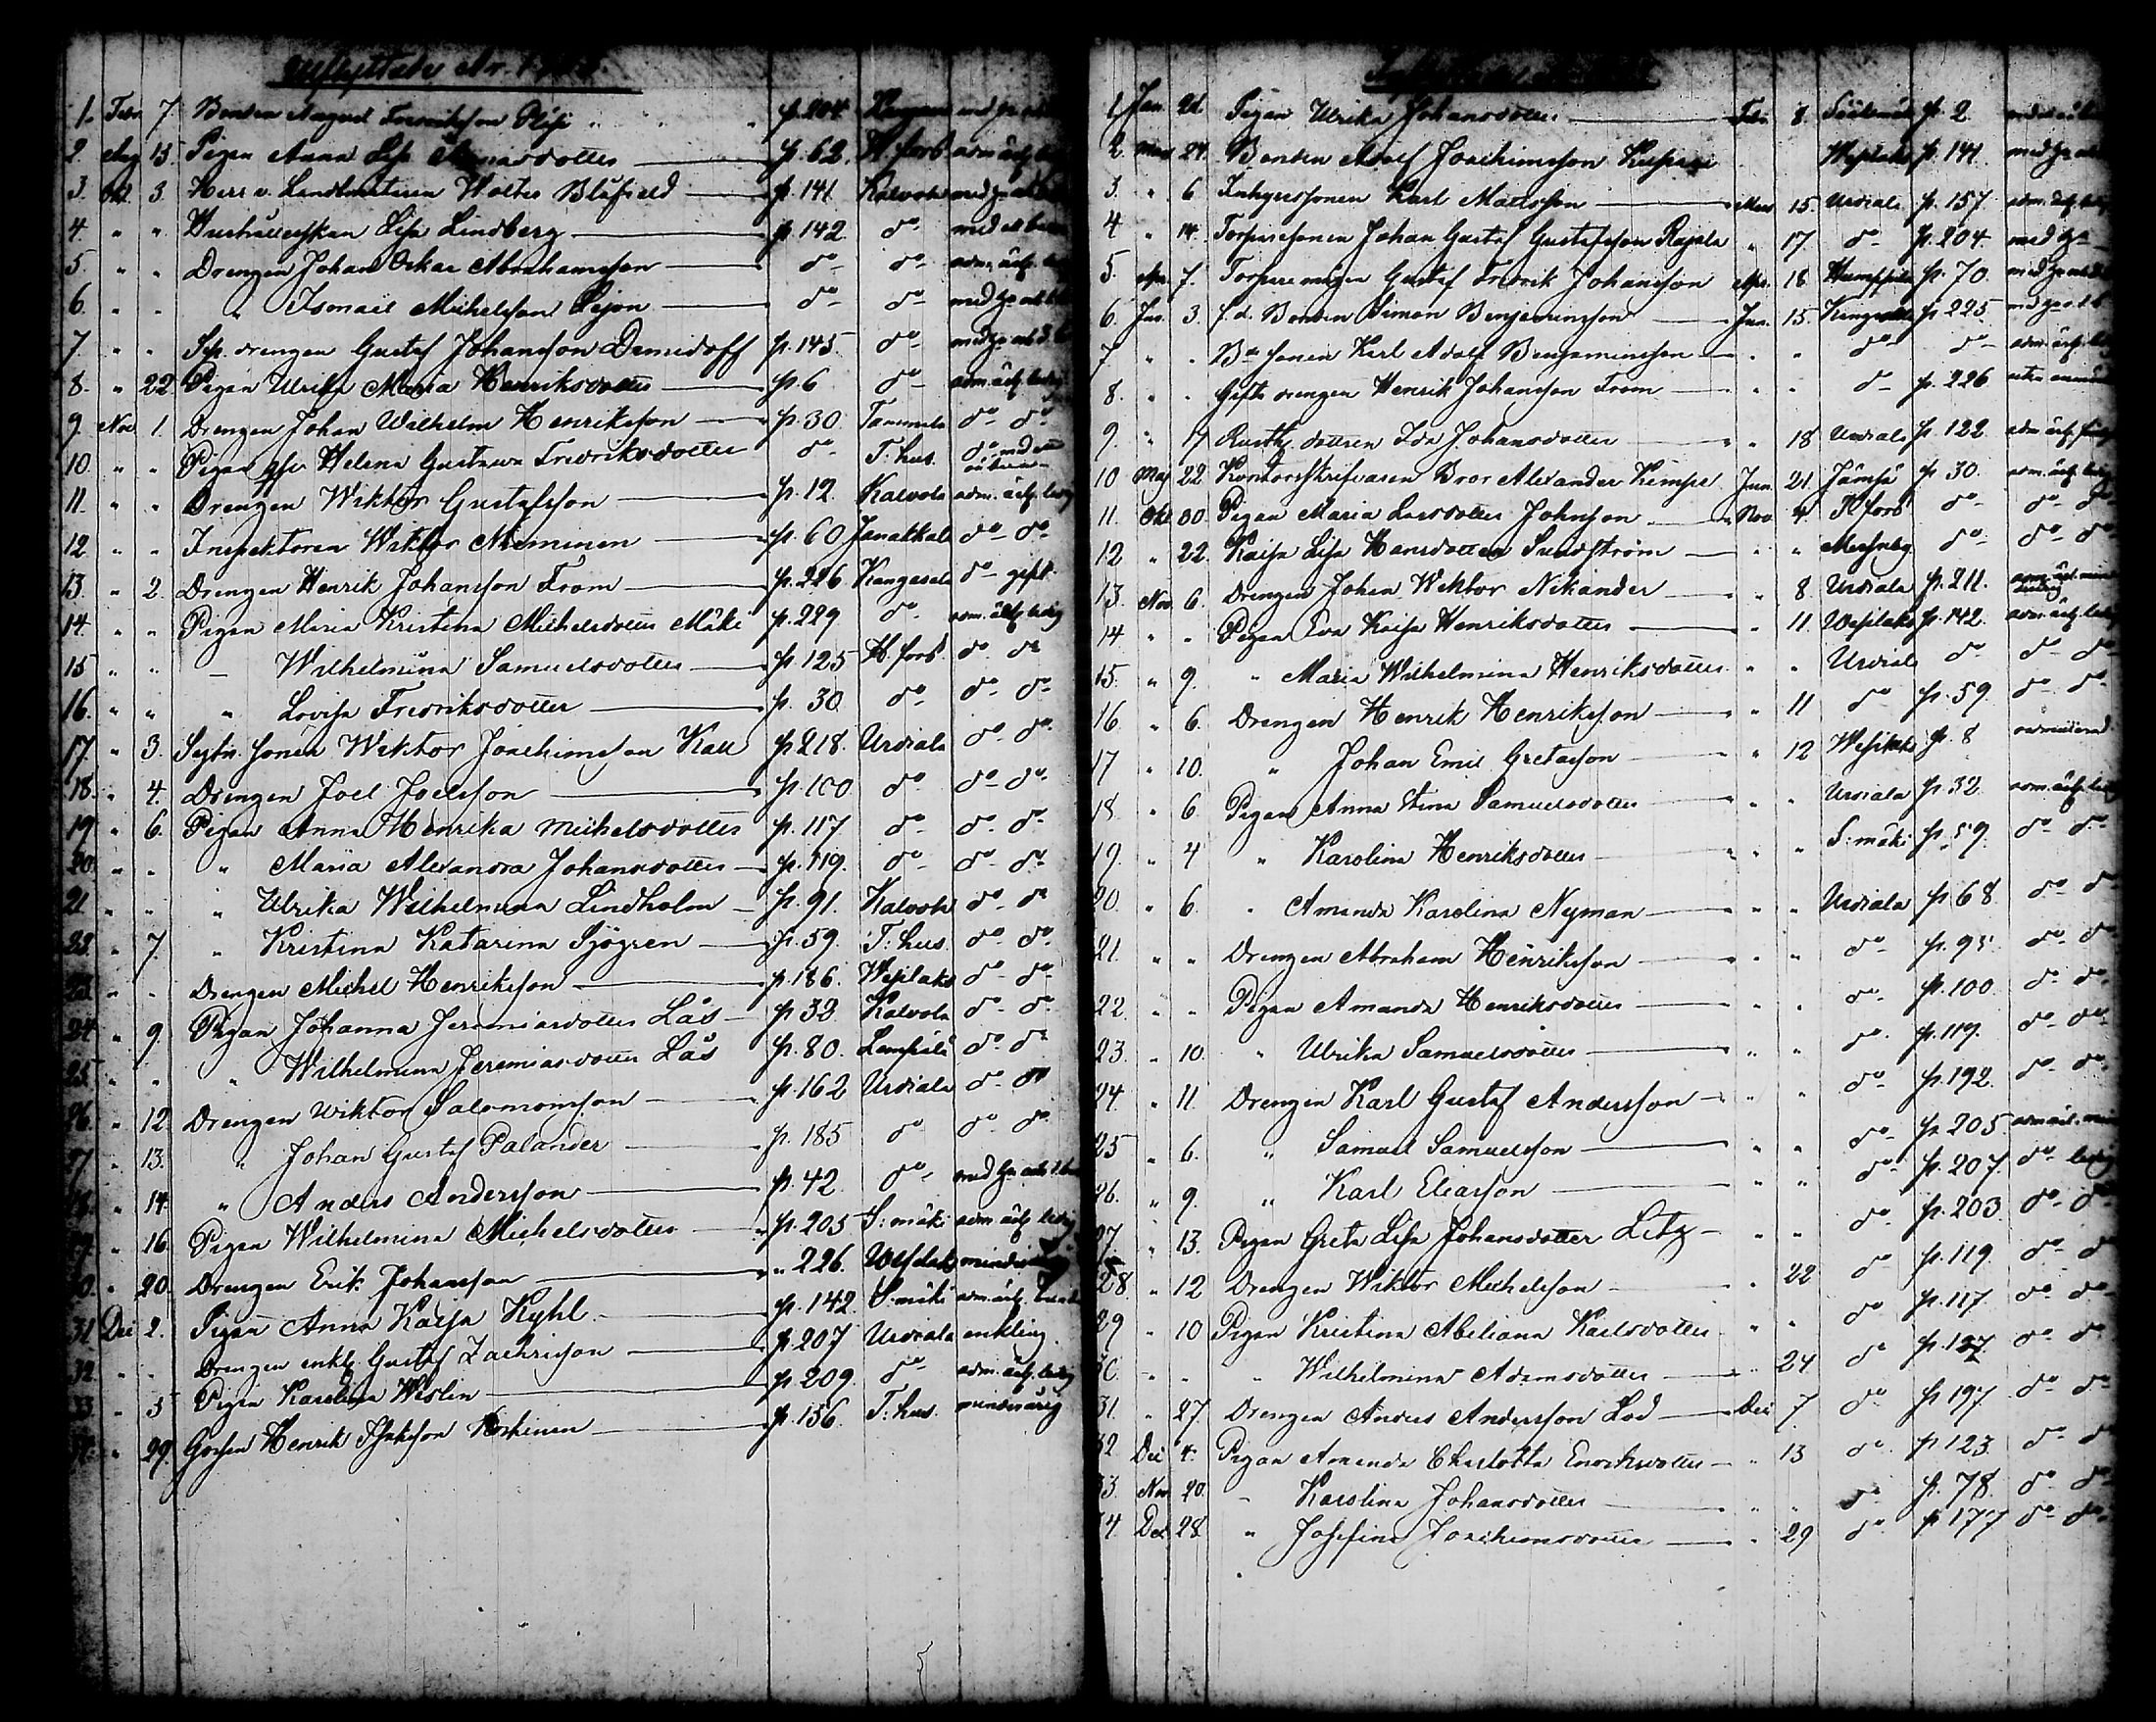 Utflyttade År
1. Febr 7. Bonden August Fredriksson p. 204.
2. Aug 15. Pigan Anna Lisa p. 62. H:fors adm. ächf.
3. Okt 3. Herr v. Landtmätaren Walter Blåfield p. 141 Kalvola med
4. " " Hushållerskan Lisa Lindberg p. 142. do med ett barn
5. " " Drengen Johan Oskar Abrahamsson do do adm. ächf.
6. " " " Ismael Michelsson Lejon do do med
7. " " Sep. drengen Gustaf Johansson Demidoff p. 145. do med
8. " 22. Pigan Ulrika Maria Henriksdotter p. 6 do adm. ächf. ledig
9. Nov 1. Drengen Johan Wilhelm Henriksson p. 30. Tammela do do
10. " " Pigan Helena Gustava Fredriksdotter do T:hus. do
11. " " Drengen Wiktor Gustafsson p. 12. Kalvola adm. ächf. ledig
12. " " Inspektoren Wiktor Nieminen p. 60 Janakkala do do
13. " 2. Drengen Henrik Johansson From p. 226 Kangasala do gift
14. " " Pigan Maria Kristina Michelsdotter Mäki p. 229 do adm. ächf. ledig
15 " " – Wilhelmina Samuelsdotter p. 125 H.fors. do do
16. " " " Lovisa Fredriksdotter p. 30 do do do
17. " 3. Sonen Wiktor Joachimsson p. 218. Urdiala do do
18. " 4. Drengen Joel Joelsson p. 100 do do do
19 " 6. Pigan Anna Henrika Michelsdotter p. 117. do do do
20. " " " Maria Alexandra Johansdotter p. 119. do do do
21. " " " Ulrika Wilhelmina Lindholm p. 91. Kalvola do do
22. " 7. " Kristina Katarina Sjögren p. 59. T:hus do do
23. " " Drengen Michel Henriksson p. 186. Wesilaks do do
24. " 9. Pigan Johanna Jeremiasdotter Lås p. 33 Kalvola do do
25. " " " Wilhelmina Jeremiasdotter Lås p. 80. Lempälä do do
26. " 12. Drengen Wiktor Salomonsson p. 162 Urdiala do do
27 " 13. " Johan Gustaf Palander p. 185 do do do
28. " 14. " Anders Andersson p. 42. do med
29. " 16. Pigan Wilhelmina Michelsdotter p. 205 S:mäki adm. ächf. ledig
30. " 20. Drengen Erik Johansson " 226. Wesilaks
31. Dec 2. Pigan Anna Kaisa Kyhl p. 142. S:mäki adm. ächf.
32. " " Drengen enkl. Gustaf Zachrisson p. 207 Urdiala enkling.
33. " 5 Pigan Karolina Weslin p. 209. do adm. ächf. ledig
34. " 29. Gossen Henrik Isaksson Koskinen p. 156. T:hus. minderårig
1. Jan. 21. Pigan Ulrika Johansdotter Febr 8. p. 2.
2. Mars 24. Bonden Adolf Joachimsson Wesilaks p. 141. med
3. " 6 Inhysessonen Karl Mattsson Mars 15. Urdiala p. 157. adm. ächf. ledig
4 " 14. Torparesonen Johan Gustaf Gustafsson Rajala " 17. do p. 204. med
5. Apr. 7. Torparemågen Gustaf Fredrik Johansson Apr. 18. Humppila p. 70. med
6. Jun. 3. f.d. Bonden Simon Benjaminsson Jun. 15. Kangasala p. 225 med
7 " " Bde sonen Karl Adolf Benjaminsson " " do do adm. ächf.
8. " " Gifte drengen Henrik Johansson From " " do p. 226
9. " 17 Rusth. dottren Ida Johansdotter " 18 Urdiala p. 122 adm ächf.
10 Maj 22 Kontorsskrifvaren Bror Alexander Kempe Jun. 21. Jämsä p. 30. adm. ächf. ledig
11. Okt 30. Pigan Maria Larsdotter Johnsson Nov 4. H.fors do do do
12 " 22. Kaisa Lisa Hansdotter Sundström " " do do do
13. Nov. 6. Drengen Johan Wiktor Nikander " 8. Urdiala p. 211.
14 " " Pigan Eva Kaisa Henriksdotter " 11. Wesilaks p. 142. adm. ächf. ledig
15. " 9. " Maria Wilhelmina Henriksdotter " " Urdiala do do do
16 " 6. Drengen Henrik Henriksson " 11 do p. 59. do do
17 " 10. " Johan Emil Gretasson " 12 Wesilaks p. 8
18 " 6 Pigan Anna Stina Samuelsdotter " " Urdiala p. 32 adm. ächf. ledig
19. " 4 " Karolina Henriksdotter " " S:mäki p. 59. do do
20. " 6. " Amanda Karolina Nyman " " Urdiala p. 68. do do
21. " " Drengen Abraham Henriksson " " do p. 95 do do
22. " " Pigan Amanda Henriksdotter " " do p. 100. do do
23. " 10. " Ulrika Samuelsdotter " " do p. 119. do do
24. " 11. Drengen Karl Gustaf Andersson " " do p. 192. do do
25 " 6. " Samuel Samuelsson " " do p. 205.
26. " 9. " Karl Eliasson " " do p. 207. do ledig
27 " 13. Pigan Greta Lisa Johansdotter Litz " " do p. 203. do do
28 " 12 Drengen Wiktor Michelsson " 22 do p. 119. do do
29 " 10 Pigan Kristina Abeliana Karlsdotter " " do p. 117 do do
30. " " " Wilhelmina Adamsdotter " 24 do p. 127. do do
31. " 27 Drengen Anders Andersson Lod Dec 7 do p. 197. do do
32 Dec 4. Pigan Amanda Charlotta Enoksdotter " 13 do p. 123. do do
33. Nov 20. – Karolina Johansdotter " " do p. 78. do do
34 Dec 28. " Josefina Joachimsdotter " 29 do p. 177 do do